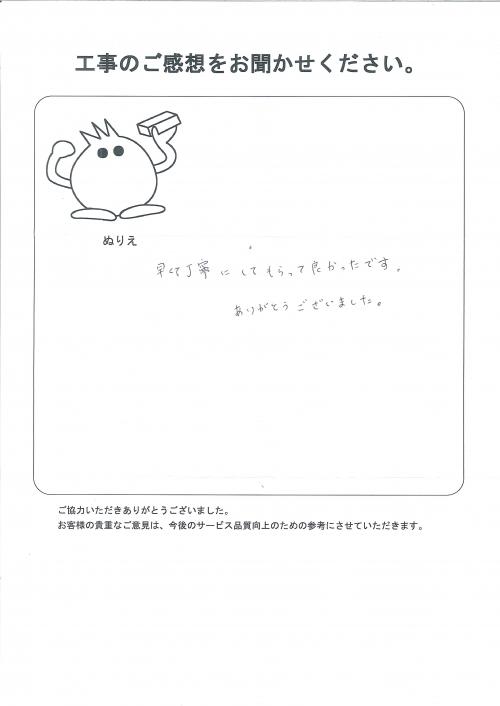 工事のご感想をお聞かせください。
ぬりえ
早くて丁寧にしてもらって良かったです。
ありがとうございました。
ご協力いただきありがとうございました。
お客様の貴重なご意見は、今後のサービス品質向上のための参考にさせていただきます。